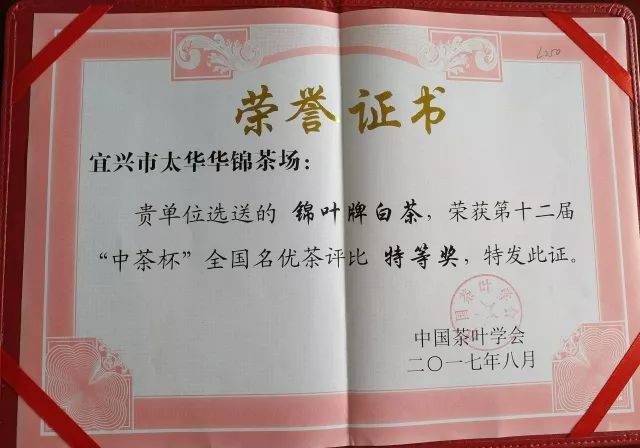 荣誉证书
宜兴市太华华锦茶场：
贵单位选送的 锦叶牌白茶，荣获第十二届
“中茶杯”全国名优茶评比 特等奖，特发此证。
中国茶叶学会
二〇一七年八月